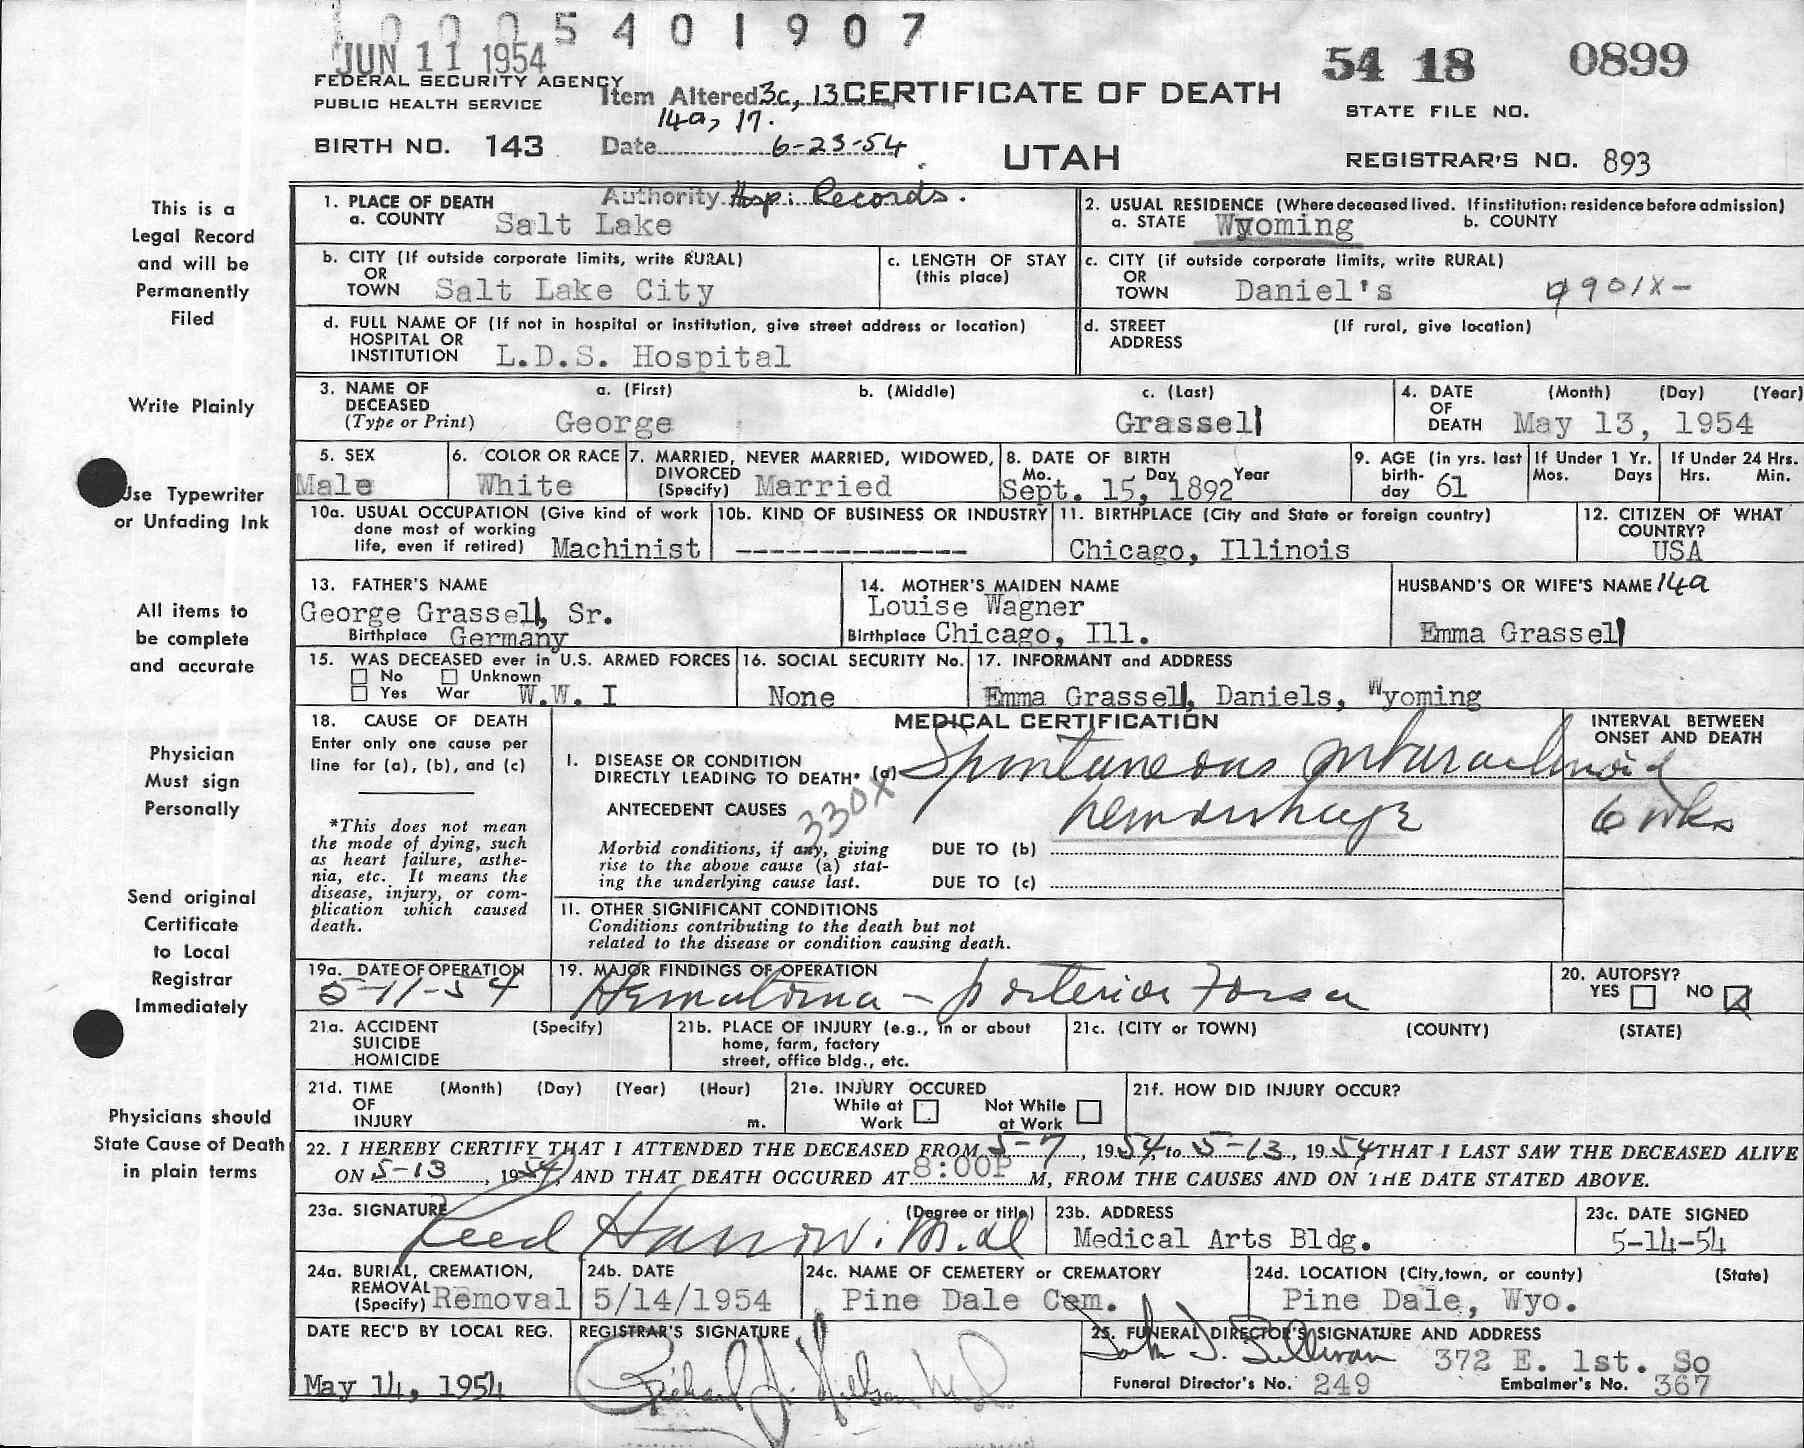 1 0 0 0 5 4 0 1 9 0 7
JUN 11 1954
FEDERAL SECURITY AGENCY
PUBLIC HEALTH SERVICE
BIRTH NO. 143
Item Altered 3c, 13
14a, 17.
Date 6-23-54
Authority Hsp: Records.
CERTIFICATE OF DEATH
UTAH
54 18 0899
STATE FILE NO.
REGISTRAR'S NO. 893
This is a
Legal Record
and will be
Permanently
Filed
Write Plainly
Use Typewriter
or Unfading Ink
All items to
be complete
and accurate
Physician
Must sign
Personally
Send original
Certificate
to Local
Registrar
Immediately
Physicians should
State Cause of Death
in plain terms
1. PLACE OF DEATH
a. COUNTY Salt Lake
2. USUAL RESIDENCE (Where deceased lived. If institution: residence before admission)
a. STATE Wyoming b. COUNTY
b. CITY (If outside corporate limits, write RURAL)
OR
TOWN Salt Lake City
c. LENGTH OF STAY
(this place)
c. CITY (if outside corporate limits, write RURAL)
OR
TOWN Daniel's 9901X-
d. FULL NAME OF (If not in hospital or institution, give street address or location)
HOSPITAL OR
INSTITUTION L.D.S. Hospital
d. STREET (If rural, give location)
ADDRESS
3. NAME OF
DECEASED
(Type or Print)
a. (First) b. (Middle) c. (Last)
George Grassell
4. DATE (Month) (Day) (Year)
OF
DEATH May 13, 1954
5. SEX
Male
6. COLOR OR RACE
White
7. MARRIED, NEVER MARRIED, WIDOWED,
DIVORCED
(Specify) Married
8. DATE OF BIRTH
Mo. Day Year
Sept. 15, 1892
9. AGE (in yrs. last
birth-
day 61
If Under 1 Yr.
Mos. Days
If Under 24 Hrs.
Hrs. Min.
10a. USUAL OCCUPATION (Give kind of work
done most of working
life, even if retired) Machinist
10b. KIND OF BUSINESS OR INDUSTRY
--------------
11. BIRTHPLACE (City and State or foreign country)
Chicago, Illinois
12. CITIZEN OF WHAT
COUNTRY?
USA
13. FATHER'S NAME
George Grassell, Sr.
Birthplace Germany
14. MOTHER'S MAIDEN NAME
Louise Wagner
Birthplace Chicago, Ill.
HUSBAND'S OR WIFE'S NAME 14a
Emma Grassell
15. WAS DECEASED ever in U.S. ARMED FORCES
No Unknown
Yes War W.W. I
16. SOCIAL SECURITY No.
None
17. INFORMANT and ADDRESS
Emma Grassell, Daniels, Wyoming
18. CAUSE OF DEATH
Enter only one cause per
line for (a), (b), and (c)
*This does not mean
the mode of dying, such
as heart failure, asthe-
nia, etc. It means the
disease, injury, or com-
plication which caused
death.
MEDICAL CERTIFICATION
I. DISEASE OR CONDITION
DIRECTLY LEADING TO DEATH* (a) Spontaneous subarachnoid
hemorrhage
ANTECEDENT CAUSES
330X
Morbid conditions, if any, giving
rise to the above cause (a) stat-
ing the underlying cause last.
DUE TO (b)
DUE TO (c)
INTERVAL BETWEEN
ONSET AND DEATH
6 wks
11. OTHER SIGNIFICANT CONDITIONS
Conditions contributing to the death but not
related to the disease or condition causing death.
19a. DATE OF OPERATION
5-11-54
19. MAJOR FINDINGS OF OPERATION
Hematoma - posterior Fossa
20. AUTOPSY?
YES NO
21a. ACCIDENT (Specify)
SUICIDE
HOMICIDE
21b. PLACE OF INJURY (e.g., in or about
home, farm, factory
street, office bldg., etc.
21c. (CITY or TOWN) (COUNTY) (STATE)
21d. TIME (Month) (Day) (Year) (Hour)
OF
INJURY m.
21e. INJURY OCCURED
While at Not While
Work at Work
21f. HOW DID INJURY OCCUR?
22. I HEREBY CERTIFY THAT I ATTENDED THE DECEASED FROM 5-7, 1954, to 5-13, 1954 THAT I LAST SAW THE DECEASED ALIVE
ON 5-13, 1954, AND THAT DEATH OCCURED AT 8:00P M, FROM THE CAUSES AND ON THE DATE STATED ABOVE.
23a. SIGNATURE (Degree or title)
Reed Harrow. M.d
23b. ADDRESS
Medical Arts Bldg.
23c. DATE SIGNED
5-14-54
24a. BURIAL, CREMATION,
REMOVAL
(Specify) Removal
24b. DATE
5/14/1954
24c. NAME OF CEMETERY or CREMATORY
Pine Dale Cem.
24d. LOCATION (City, town, or county) (State)
Pine Dale, Wyo.
DATE REC'D BY LOCAL REG.
May 14, 1954
REGISTRAR'S SIGNATURE
Richard J. Nielsen M.D.
25. FUNERAL DIRECTOR'S SIGNATURE AND ADDRESS
John J. Sullivan 372 E. 1st. So
Funeral Director's No. 249 Embalmer's No. 367